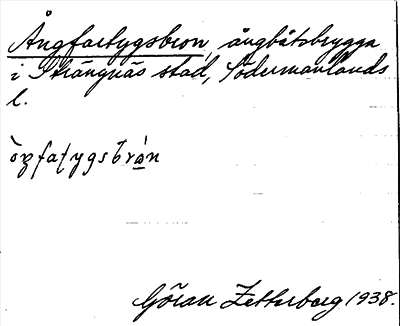 Ångfartygsbron, ångbåtsbrygga
i Strängnäs stad, Södermanlands
l.
Göran Zetterberg 1938.